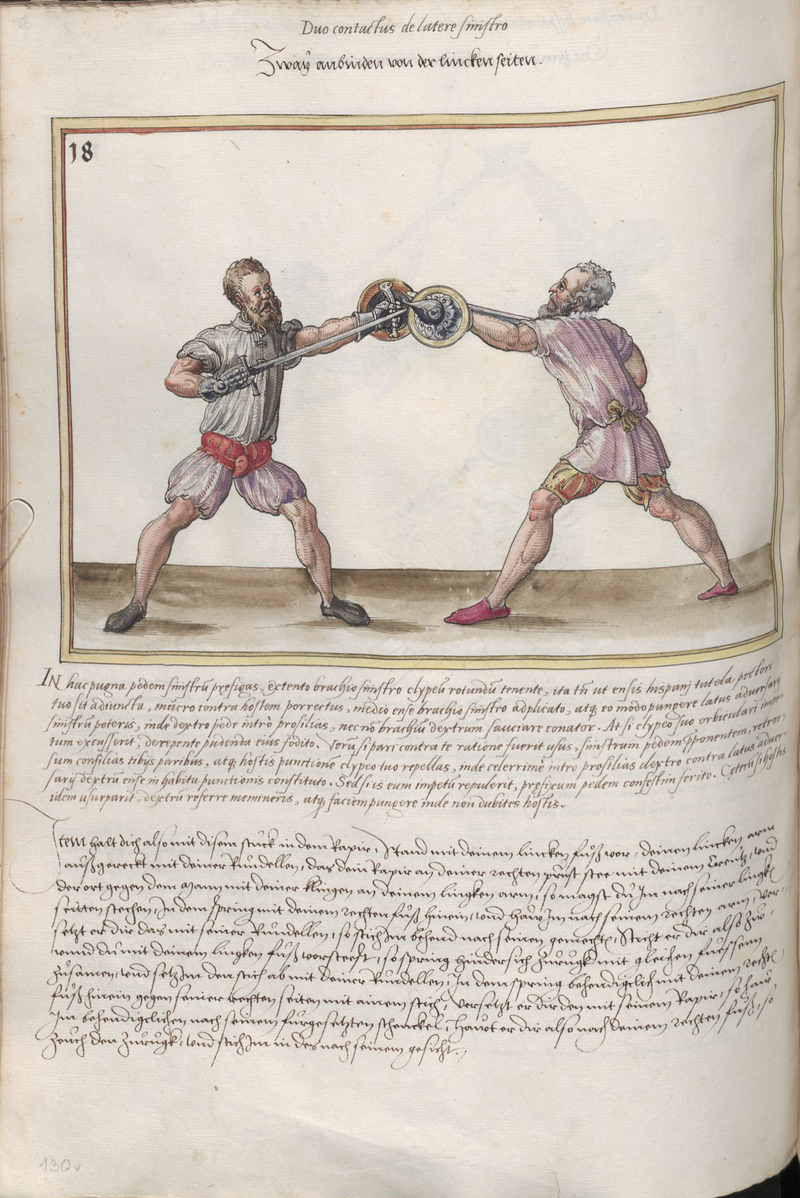 Duo contactus de latere sinistro
Zwaÿ anbinden von der lincken seiten.
18
IN hac pugna pedem sinistrū praefigas, extento brachio sinistro clypeū rotundū tenente, ita tñ ut ensis hispani tutela pectori
tuo sit adiuncta, mucro contra hostem porrectus, medio ense brachio sinistro adplicato, atq; eo modo pungere latus adversarij
sinistrū poteris, inde dextro pede intrò prosilias, nec nō brachiū dextrum sauciare conator. At si clypeo suo orbiculari impe-
tum excusserit, derepente pudenda eius fodito. Verū si pari contra te ratione fuerit usus, sinistrum pedem ponentem, retror-
sum consilias tibijs paribus, atq; hostis punctione clypeo tuo repellas, inde celerrimè intro prosilias dextro contra latus adver-
sarij dextrū ense in habitu punctionis constituto. Sed si is eum impetū repulerit, praefixum pedem confestim ferito. Caeterū si hostis
idem usurparit, dextrū referre memineris, atq; faciem pungere inde non dubites hostis.
Item halt dich also mit disem stuck in dem Rapir, Stand mit deinem lincken fuß vor, deinen lincken arm
außgereckt mit deiner Rundellen, das dein Rapir an deiner rechten prust stee mit deinem Creutz, vnd
der ort gegen dem Mann mit deiner klingen an deinem lingken arm, so magst du Im nach seiner lingkē
seitten stechen, In dem spring mit deinem rechten fuß hinein, vnd haw Im nach seinem rechten arm, Ver-
setzt er dir das mit seiner Rundellen, so stich Im behend nach seinen gemecht, Sticht er dir also Zů-
vnnd du mit deinem lingken fuß vorsteest, so spring hindersich Zurugk mit gleichen fuessen
Zusamen, vnd setz Im den stich ab mit deiner Rundellen, In dem spring behendigclich mit deinem rechtē
fuß hinein gegen seiner rechten seiten mit ainem stich, Versetzt er dir den mit seinem Rapir, so haw
Im behendigclichen nach seinem fürgesetzten schenckel, Hawt er dir also nach deinem rechten fuß, so
Zeuch den Zurugk, vnd stich Im in des nach seinem gesicht.
130v